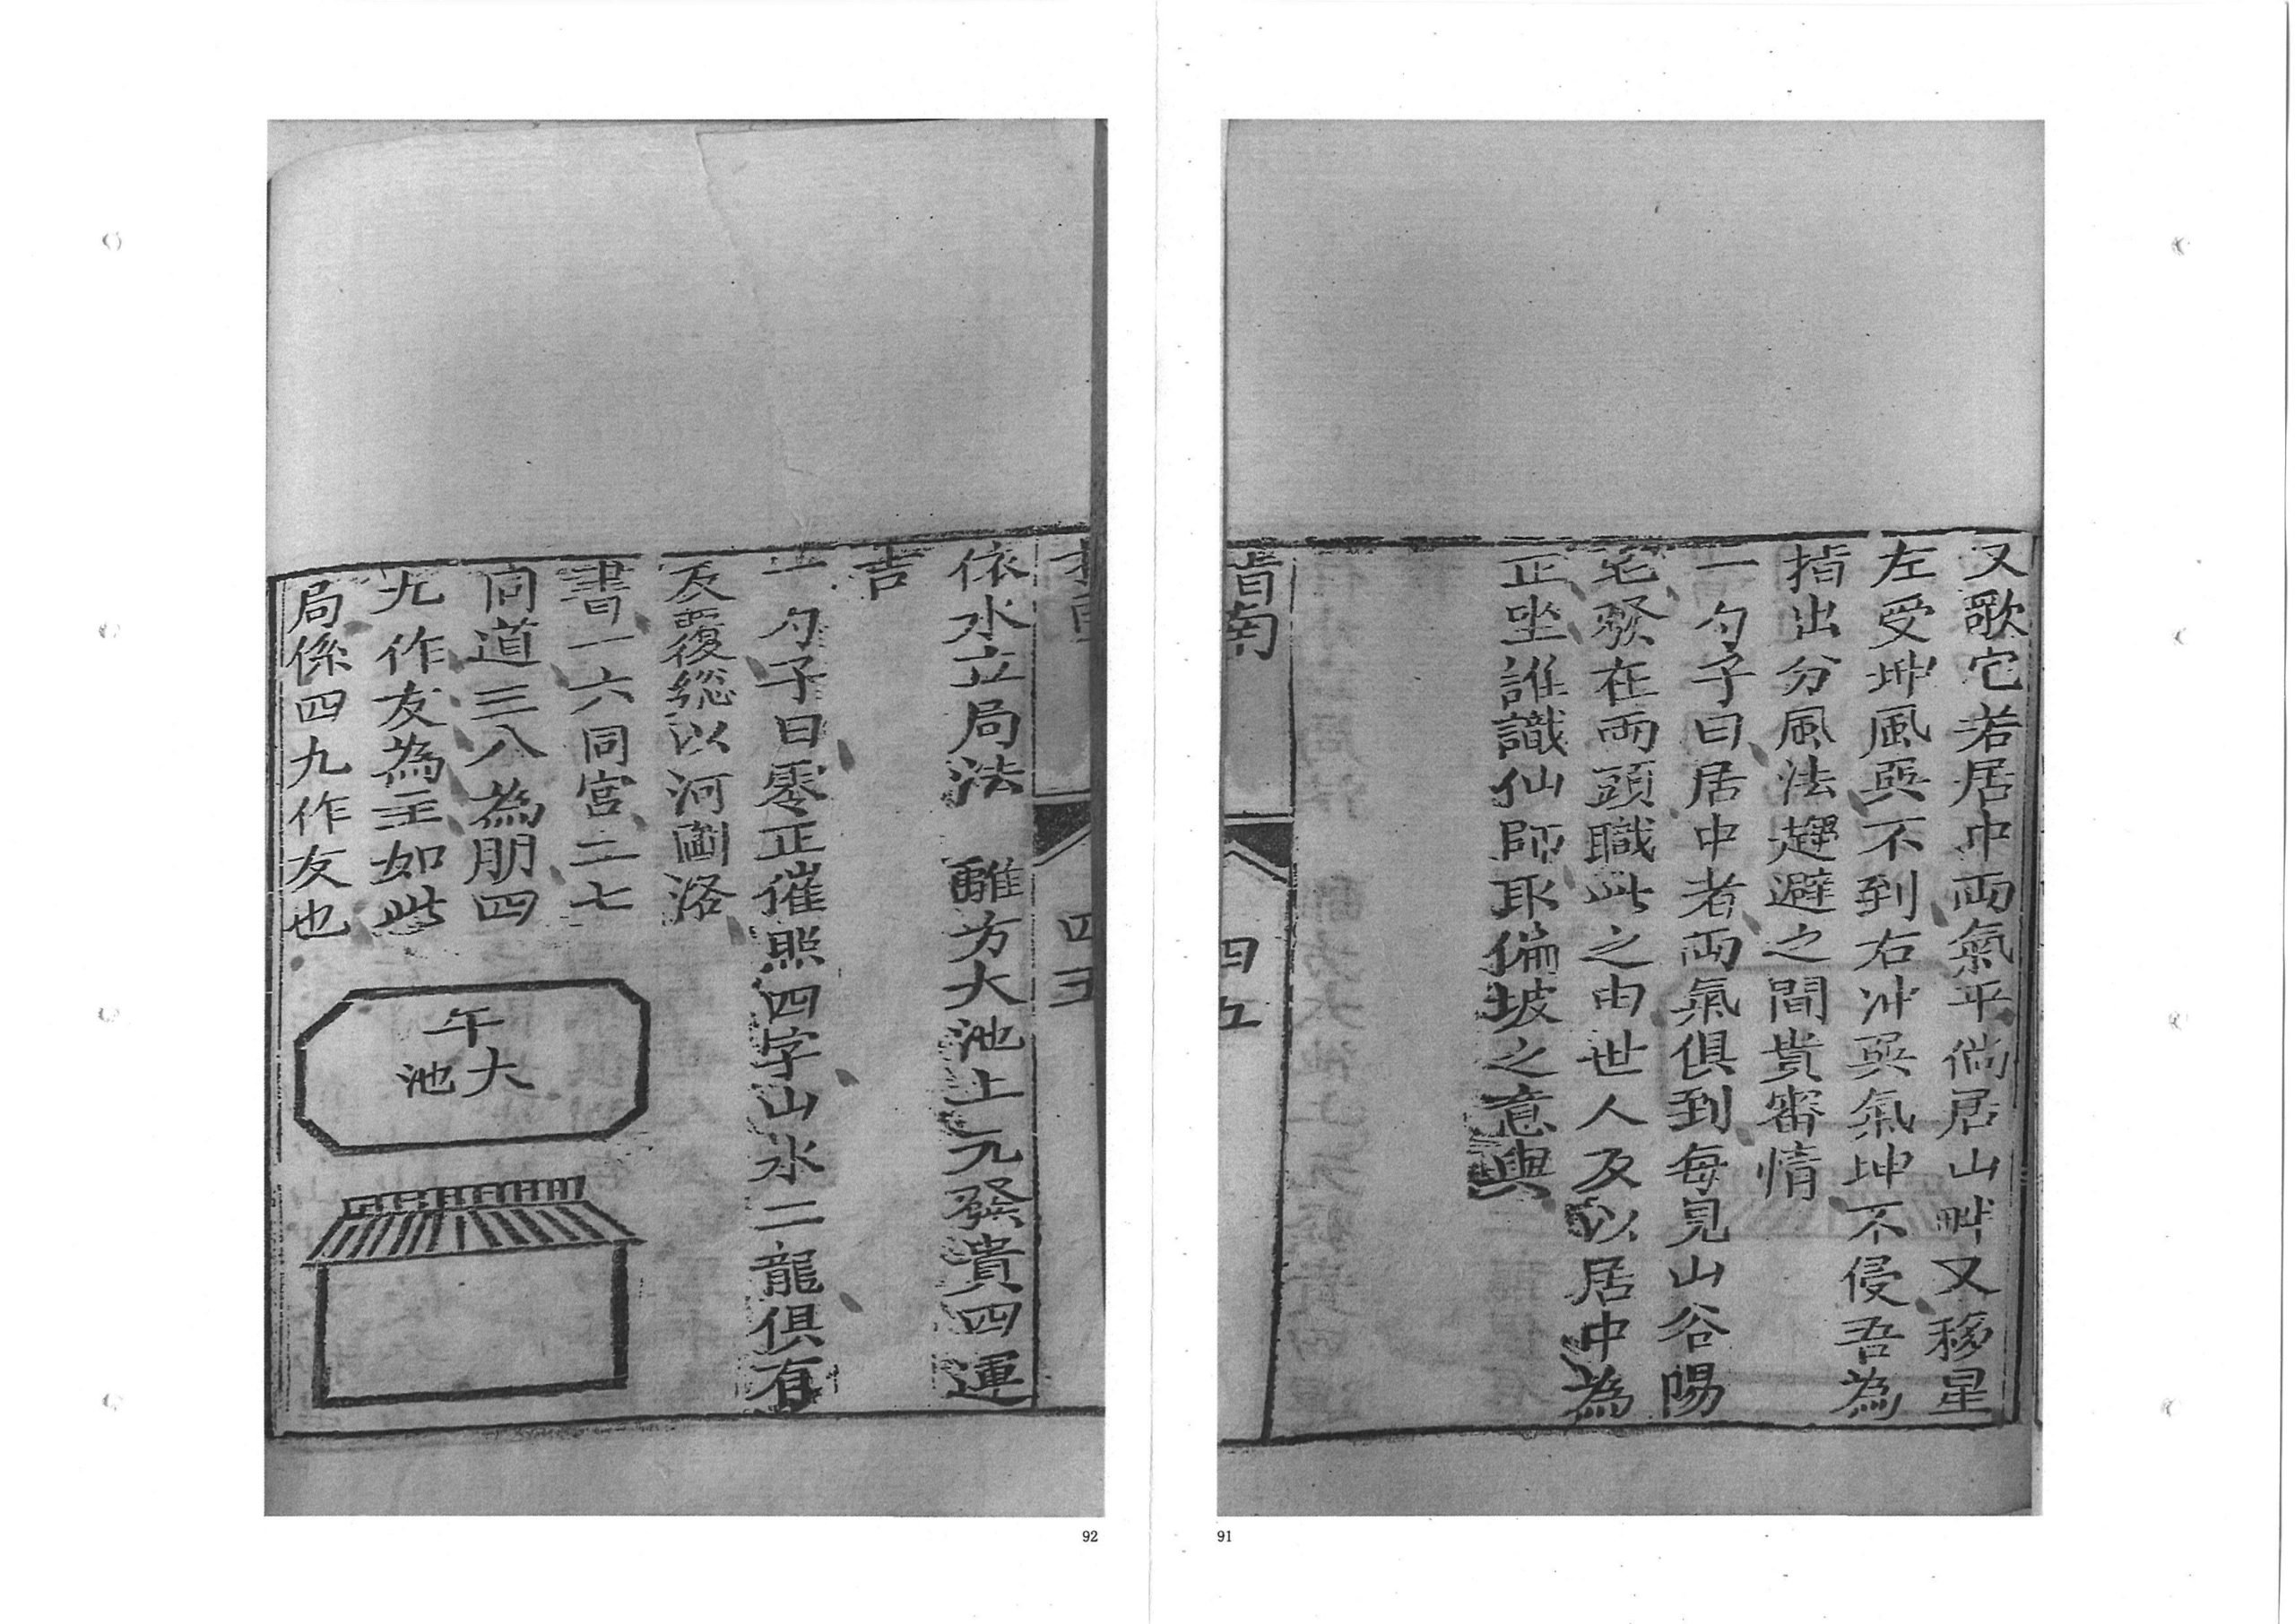 又歌宅若居中両氣平倘居山畔又移星
左受坤風巽不到右冲巽氣坤不侵吾為
指出分風法趨避之間貴審情
一勺子曰居中者両氣俱到每見山谷陽
宅發在両頭職此之由世人及以居中為
正坐誰識仙師取偏坡之意與
指南
四五
91
四五
依水立局法 離方大池上元發貴四運
吉
一勺子曰零正催照四字山水二龍俱有
反覆総以河圖洛
書一六同宮二七
同道三八為朋四
九作友為主如此
局係四九作友也
午
大
池
92